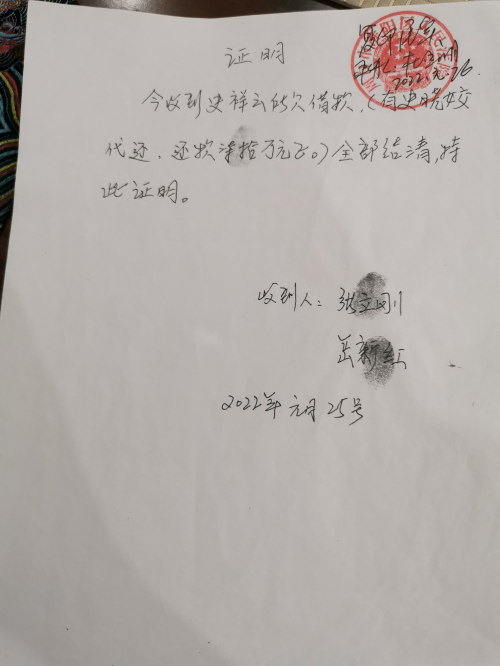 证明
今收到史祥云的欠借款,(有史晓姣
代还,还款柒拾万元正。)全部结清,特
此证明。
收到人:张立刚
岳新红
2022年元月25号
复印属实
2022.元.26